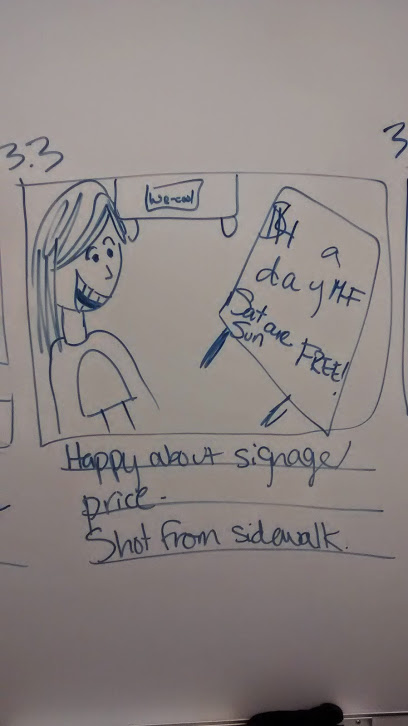 3.3
3
we-cool
$4 a
day M-F
Sat are
Sun FREE!
Happy about signage/
price.
Shot from sidewalk.